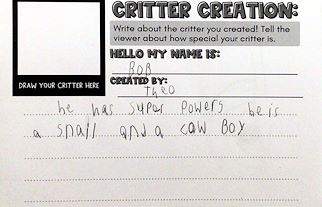 CRITTER CREATION:
Write about the critter you created! Tell the
viewer about how special your critter is.
HELLO MY NAME IS:
BOB
CREATED BY:
Theo
DRAW YOUR CRITTER HERE
he has super powers he is
a snall and a caw Boy